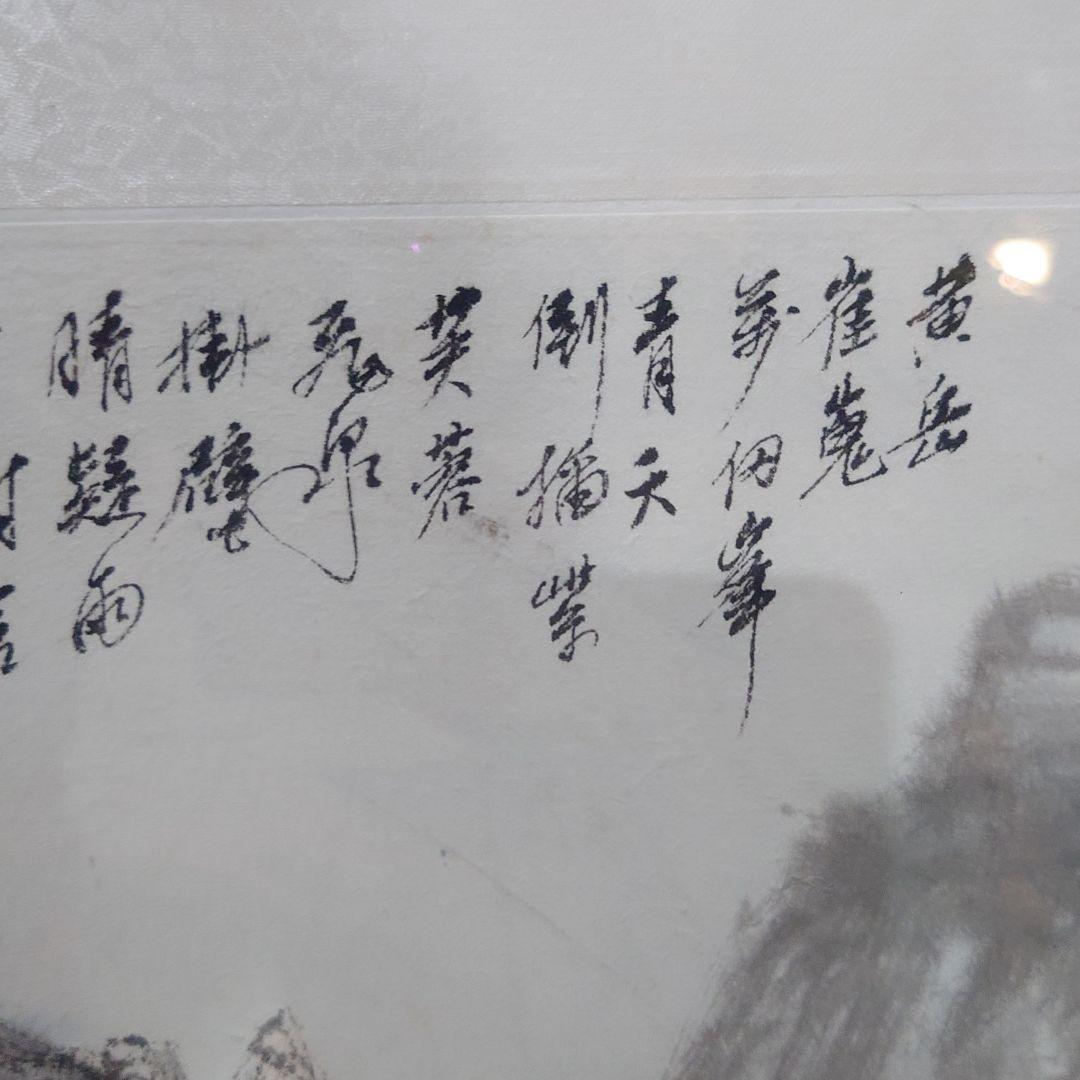 黄岳
崔嵬
萬仞峯
青天
倒插紫
芙蓉
飛泉
掛壁
晴疑雨